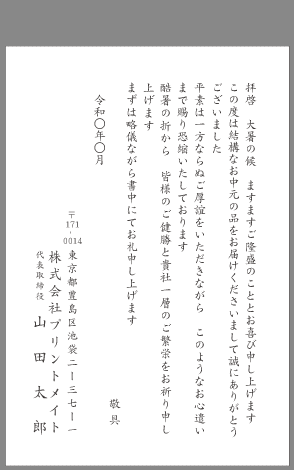 拝啓　大暑の候　ますますご隆盛のこととお喜び申し上げます
この度は結構なお中元の品をお届けくださいまして誠にありがとう
ございました
平素は一方ならぬご厚誼をいただきながら　このようなお心遣い
まで賜り恐縮いたしております
酷暑の折から　皆様のご健勝と貴社一層のご繁栄をお祈り申し
上げます
まずは略儀ながら書中にてお礼申し上げます
敬具
令和〇年〇月
〒171-0014
東京都豊島区池袋二ー三七ー一
株式会社プリントメイト
代表取締役　山田太郎